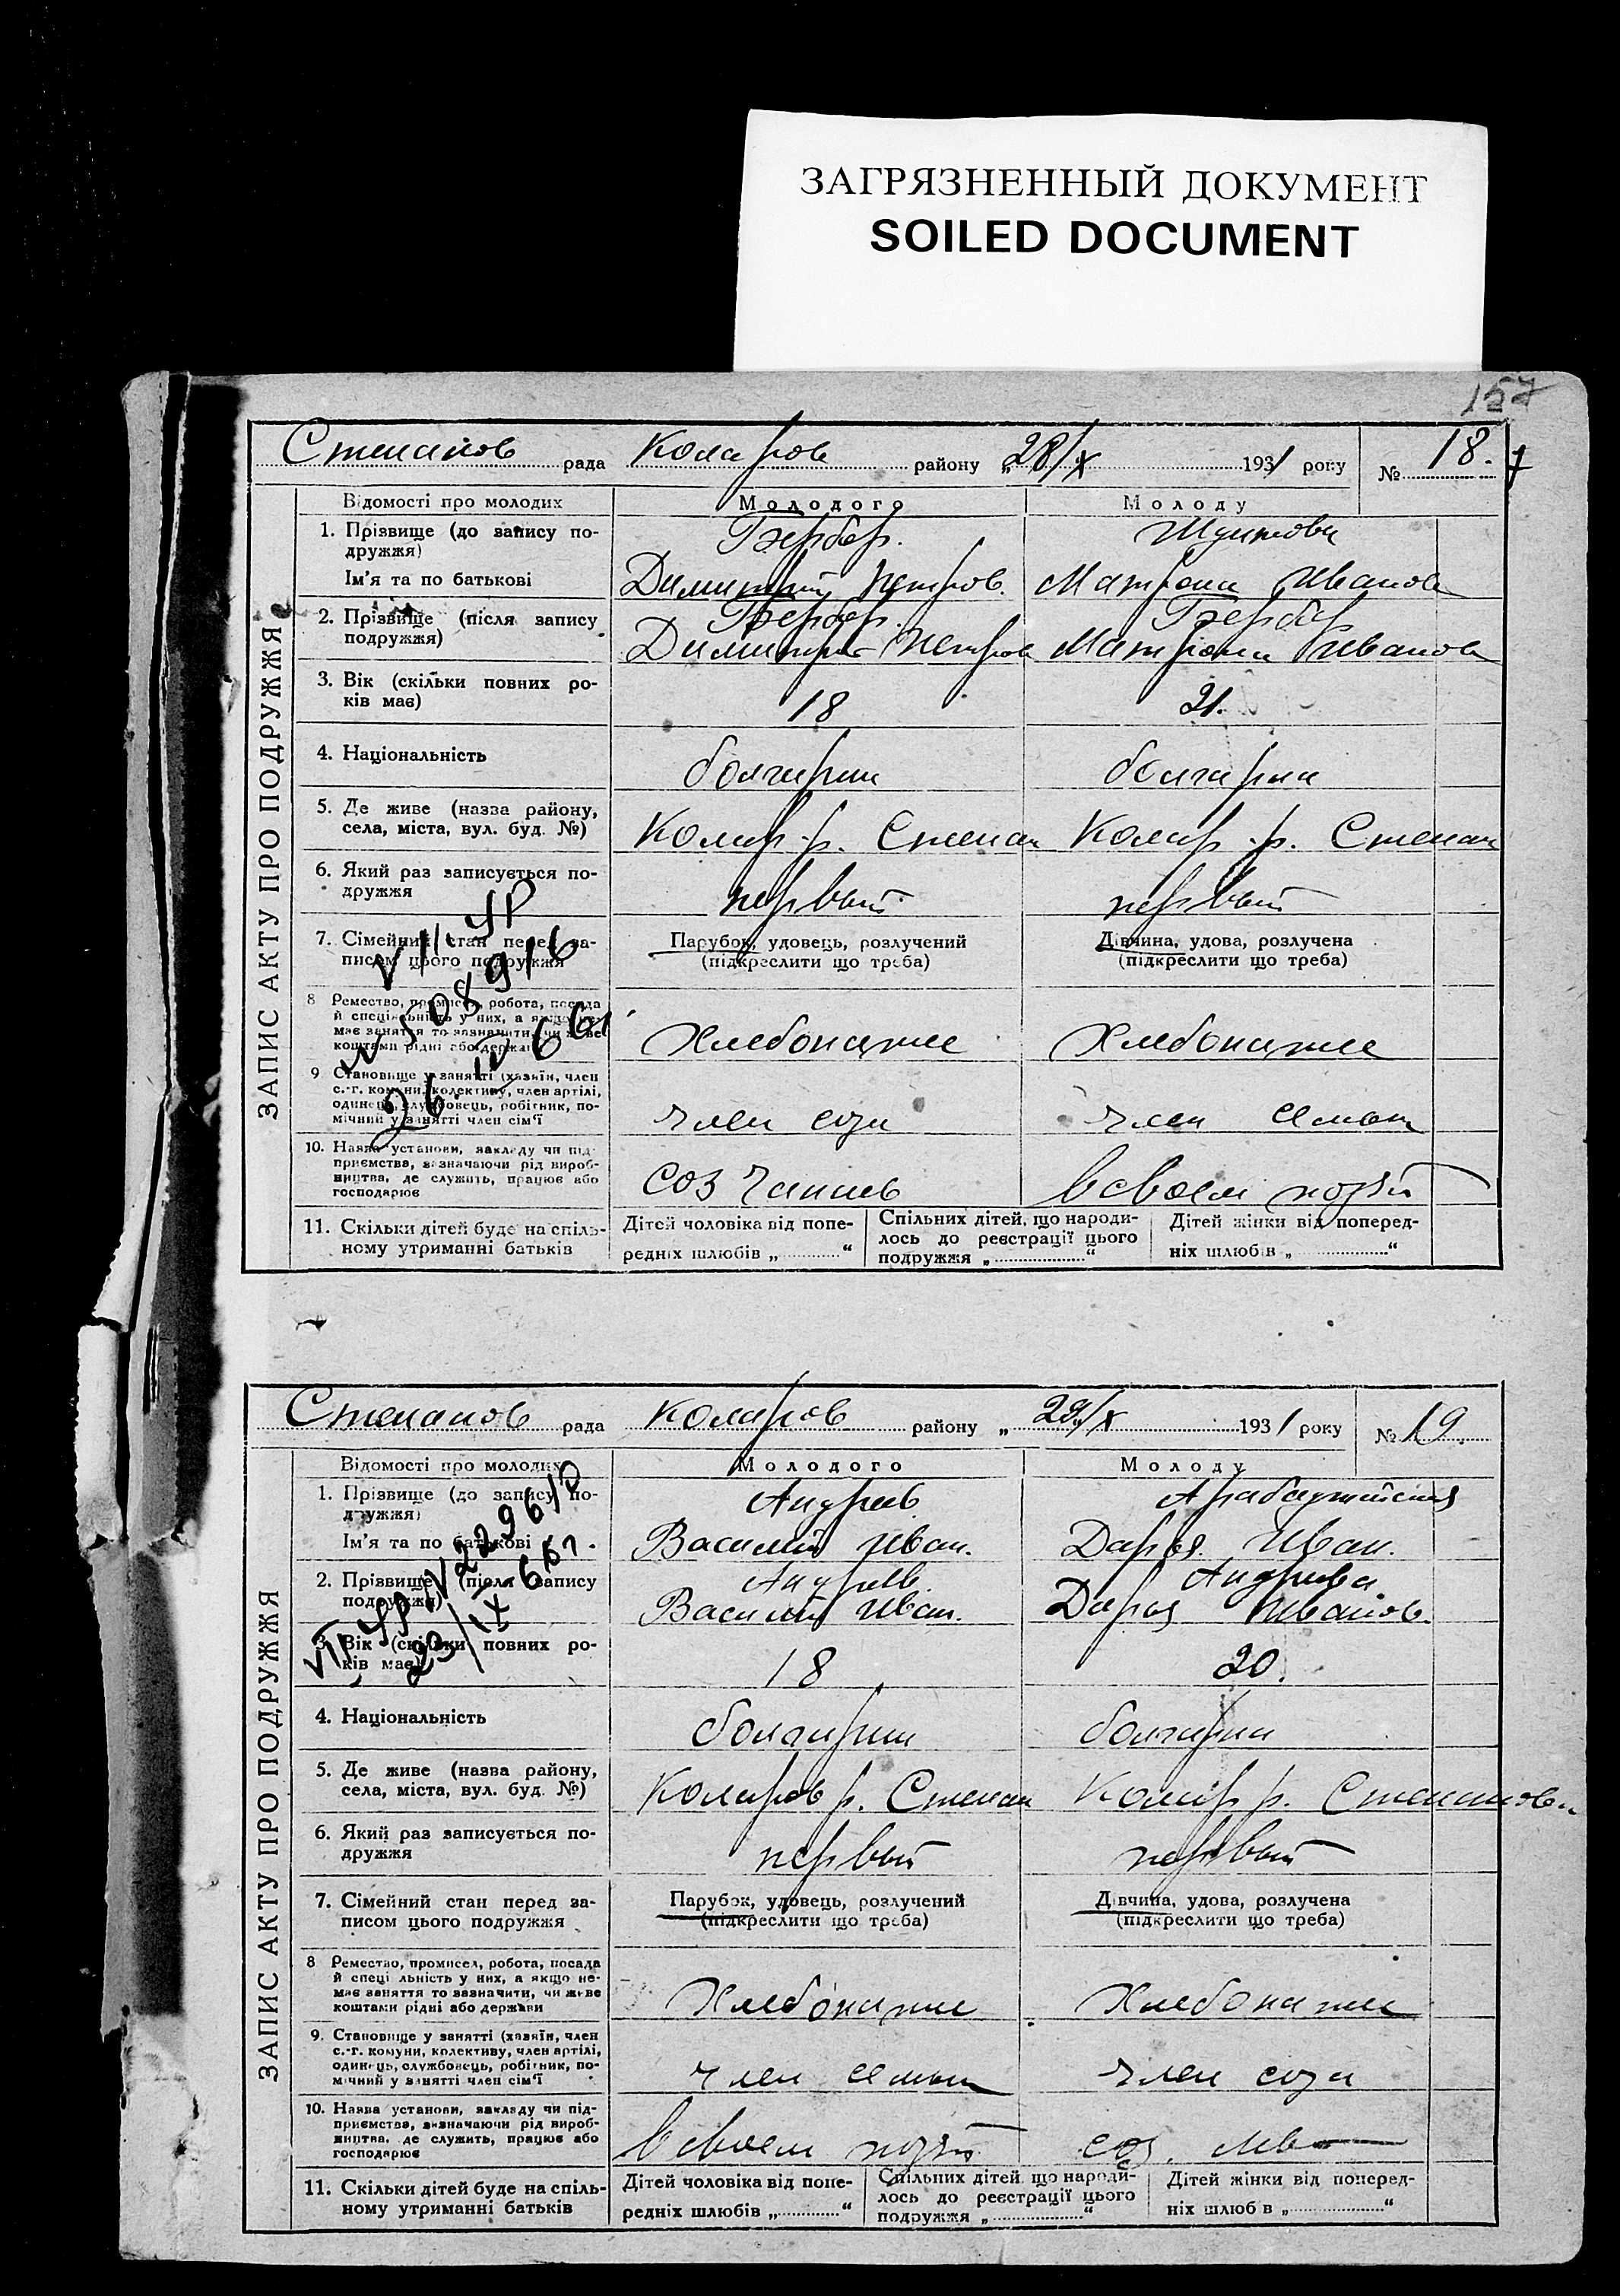 ЗАГРЯЗНЕННЫЙ ДОКУМЕНТ
SOILED DOCUMENT
157
Степанов рада Коларов району „28/X 1931 року № 18.
ЗАПИС АКТУ ПРО ПОДРУЖЖЯ
Відомості про молодих Молодого Молоду
1. Прізвище (до запису по-
дружжя)
Ім'я та по батькові
Димитрий Петров. Матрона Иванов
2. Прізвище (після запису
подружжя)
Димитрий Петров Матрона Иванов
3. Вік (скільки повних ро-
ків має)
18 21.
4. Національність
болгарин болгарка
5. Де живе (назва району,
села, міста, вул. буд. №)
Колар. р. Степан Колар. р. Степан
6. Який раз записується по-
дружжя
первый первый
7. Сімейний стан перед за-
писом цього подружжя
Парубок, удовець, розлучений Дівчина, удова, розлучена
(підкреслити що треба) (підкреслити що треба)
8 Ремество, промисел, робота, посада
й спеціяльність у них, а якщо не-
має заняття то зазначити, чи живе
коштами рідні або держави
Хлебопаш Хлебопаш
9 Становище у занятті (хазяїн, член
с.-г. комуни, колективу, член артілі,
одинець, службовець, робітник, по-
мічний у занятті член сім'ї
член соза член семьи
10. Назва установи, закладу чи під-
приємства, зазначаючи рід вироб-
ництва, де служить, працює або
господарює
СОЗ в своем
11. Скільки дітей буде на спіль-
ному утриманні батьків
Дітей чоловіка від попе-
редніх шлюбів „ “
Спільних дітей, що народи-
лось до реєстрації цього
подружжя „ “
Дітей жінки від поперед-
ніх шлюбів „ “
Степанов рада Коларов району „29/X 1931 року № 19.
ЗАПИС АКТУ ПРО ПОДРУЖЖЯ
Відомості про молодих Молодого Молоду
1. Прізвище (до запису по-
дружжя)
Андреев
Ім'я та по батькові
Василий Иван. Дарья Иван.
2. Прізвище (після запису
подружжя)
Андреев. Андреева
Василий Иван. Дарья Иванов.
3. Вік (скільки повних ро-
ків має)
18 20.
4. Національність
болгарин болгарка
5. Де живе (назва району,
села, міста, вул. буд. №)
Коларов р. Степан Колар р. Степановка
6. Який раз записується по-
дружжя
первый первый
7. Сімейний стан перед за-
писом цього подружжя
Парубок, удовець, розлучений Дівчина, удова, розлучена
(підкреслити що треба) (підкреслити що треба)
8 Ремество, промисел, робота, посада
й спеціяльність у них, а якщо не-
має заняття то зазначити, чи живе
коштами рідні або держави
Хлебопаш Хлебопаш
9. Становище у занятті (хазяїн, член
с.-г. комуни, колективу, член артілі,
одинець, службовець, робітник, по-
мічний у занятті член сім'ї
член семьи член соза
10. Назва установи, закладу чи під-
приємства, зазначаючи рід вироб-
ництва, де служить, працює або
господарює
в своем соз.
11. Скільки дітей буде на спіль-
ному утриманні батьків
Дітей чоловіка від попе-
редніх шлюбів „ “
Спільних дітей, що народи-
лось до реєстрації цього
подружжя „ “
Дітей жінки від поперед-
ніх шлюбів „ “